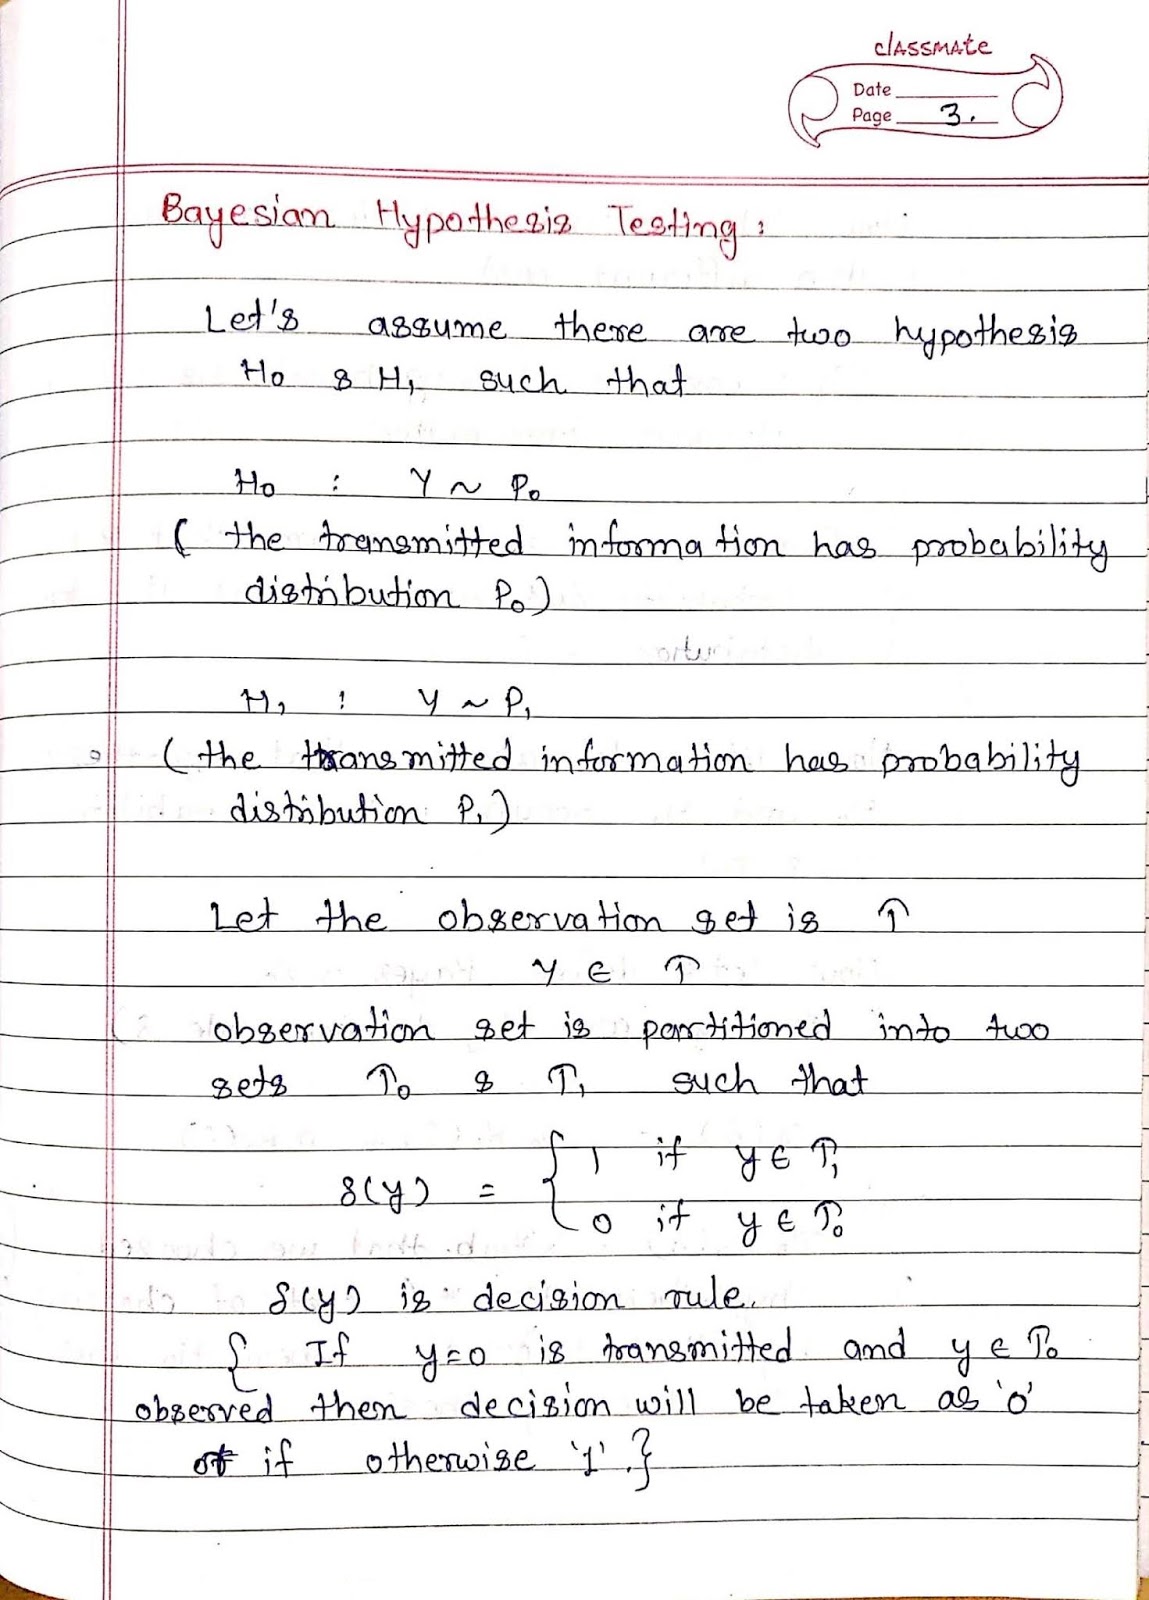 classmate
Date
Page 3.
Bayesian Hypothesis Testing :
Let's assume there are two hypothesis
H0 & H1 such that
H0 : Y ~ P0
( the transmitted information has probability
distribution P0 )
H1 : Y ~ P1
( the transmitted information has probability
distribution P1 )
Let the observation set is Γ
y ∈ Γ
observation set is partitioned into two
sets Γ0 & Γ1 such that
δ(y) = { 1 if y ∈ Γ1
0 if y ∈ Γ0
δ(y) is decision rule.
{ If y=0 is transmitted and y ∈ Γ0
observed then decision will be taken as '0'
if otherwise '1'. }